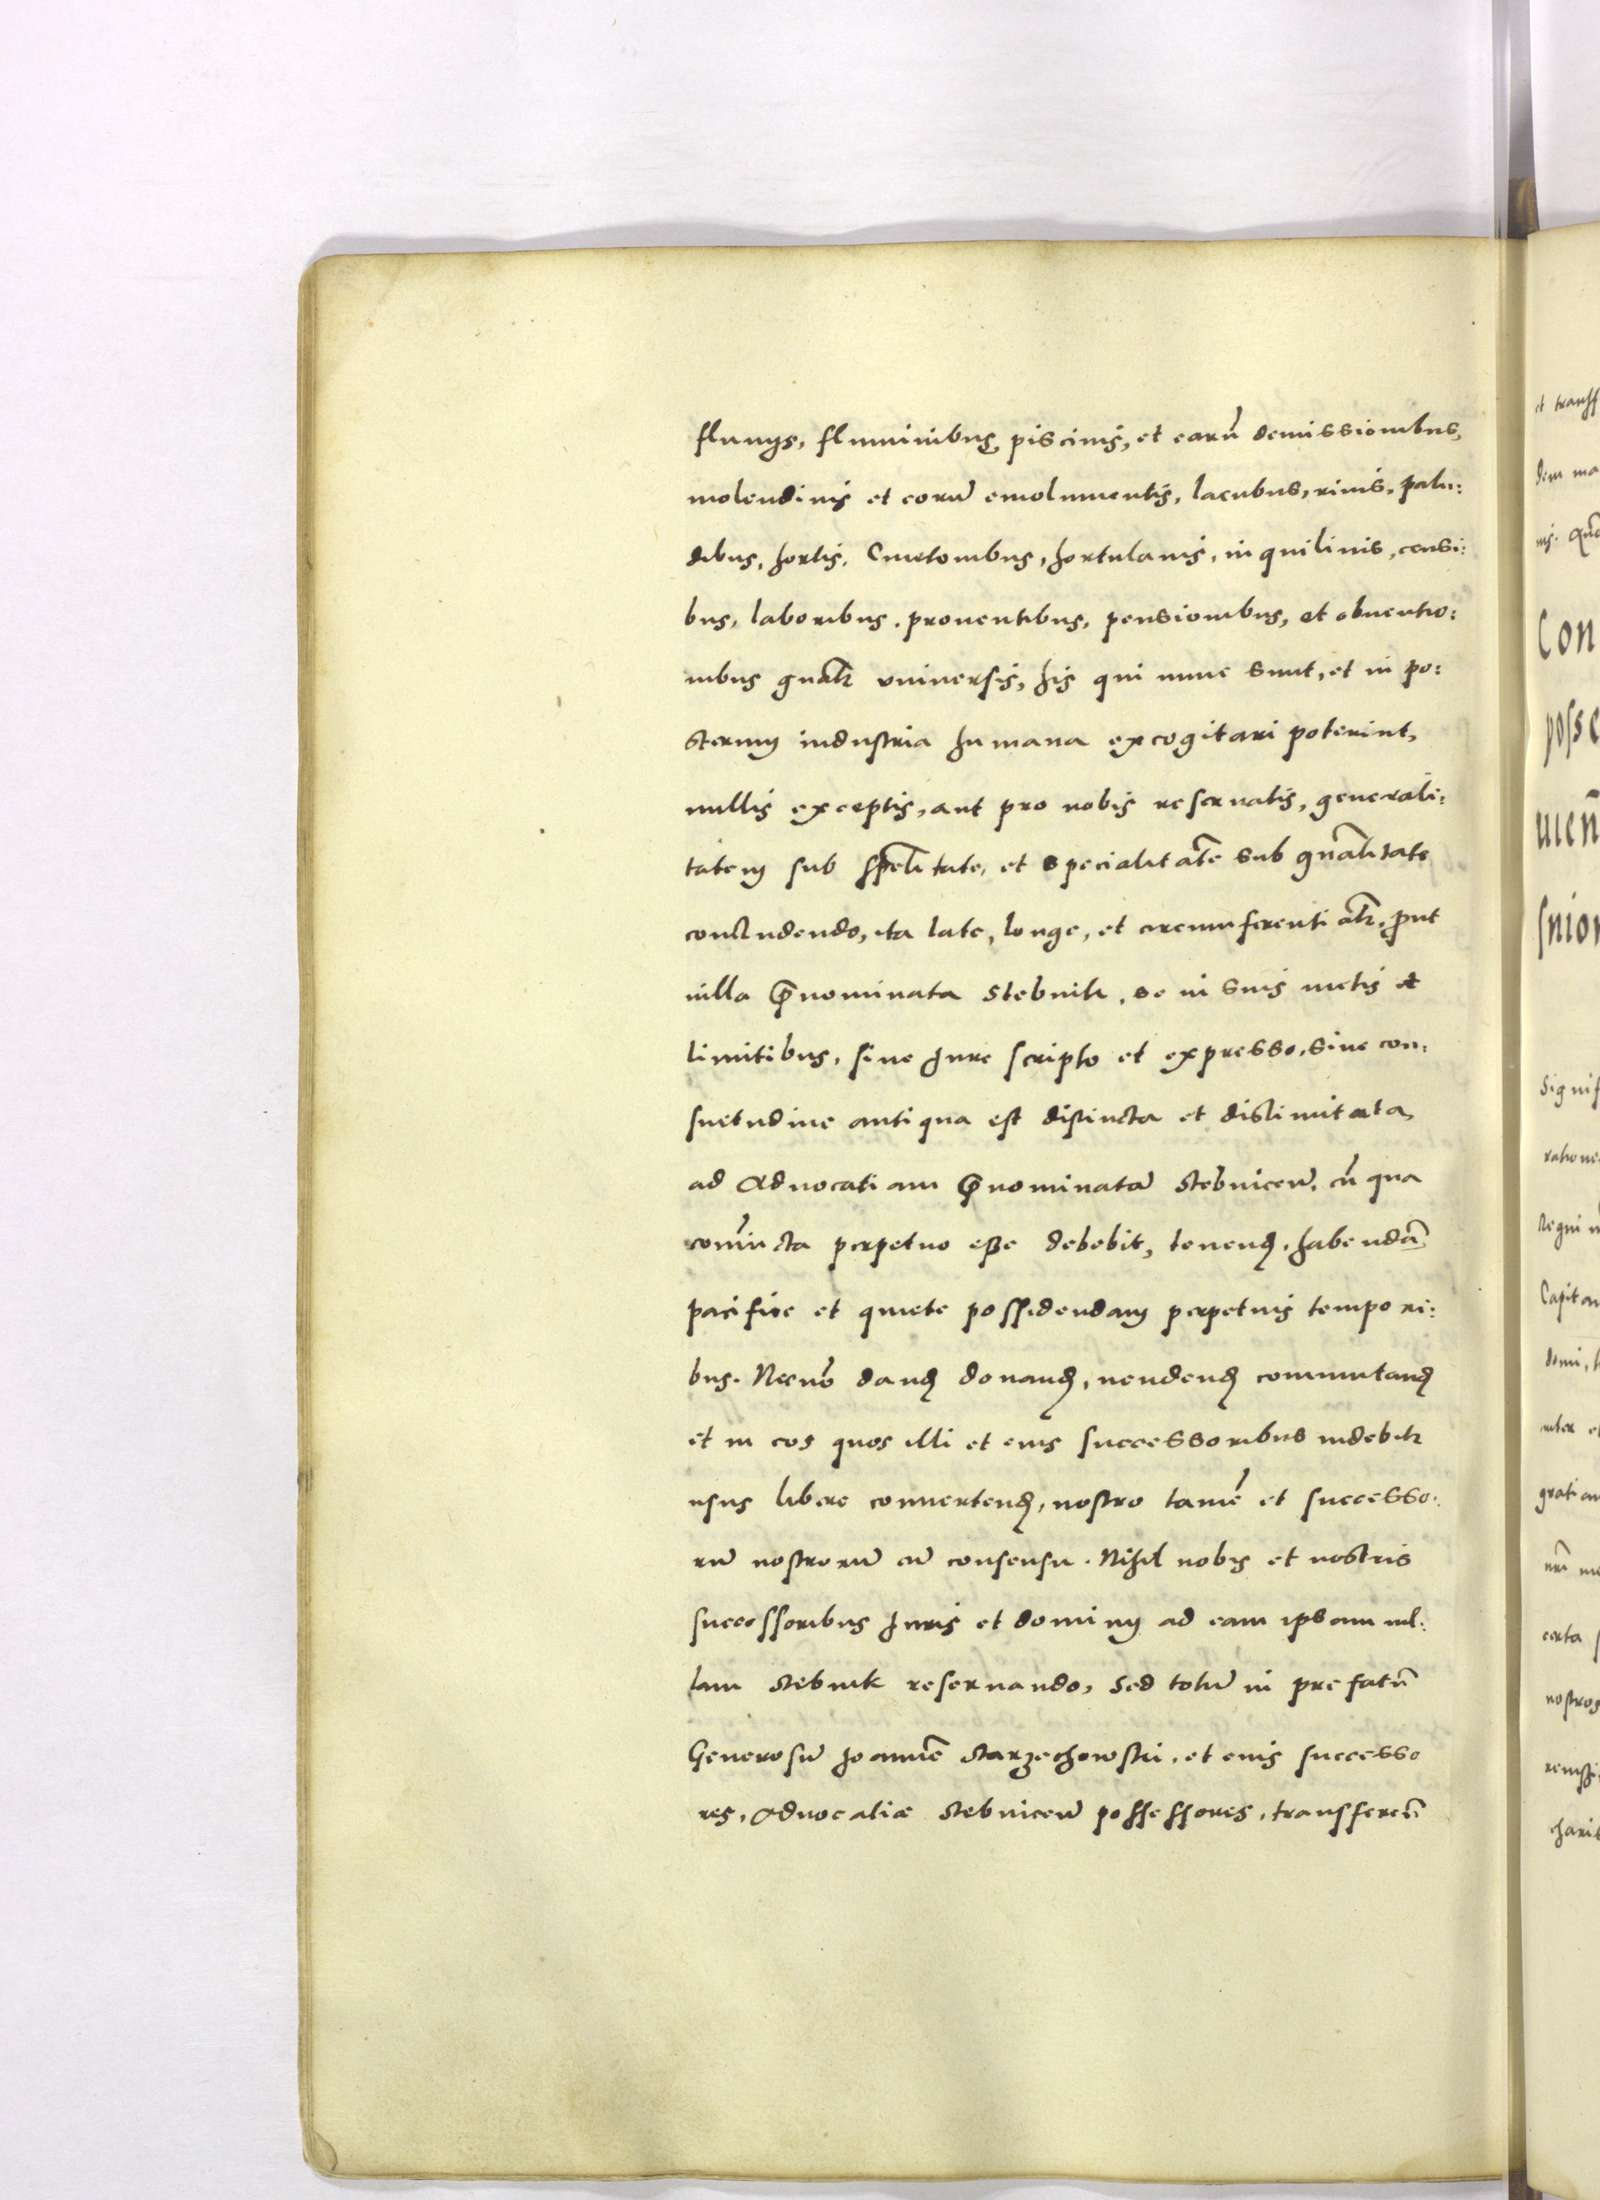 fluuijs, fluminibus, piscinis, et earū demissionibus,
molendinis et eorū emolumentis, lacubus, riuis, palu:
dibus, hortis, Cmetonibus, hortulanis, inquilinis, censi:
bus, laboribus, prouentibus, pensionibus, et obuentio:
nibus gnālr vniuersis, his qui nunc sunt, et in po:
sterum industria humana excogitari poterint,
nullis exceptis, aut pro nobis reseruatis, generali:
tatem sub spēlitate, et specialitatē sub gnālitate
concludendo, ita late, longe, et circumferentiālr, put
uilla p̄nominata Stebnik, se in suis metis et
limitibus, siue jure scripto et expresso, siue con:
suetudine antiqua est distincta et dislimitata,
ad Aduocatiam p̄nominatā Stebniceñ, cū qua
coniūcta perpetuo esse debebit, tenend, habendā
pacifice et quiete possidendam perpetuis tempori:
bus. Necnō dand donand, uendend commutand
et in eos quos illi et eius successoribus uidebitr
usus libere conuertend, nostro tamē et successo:
rū nostrorū cū consensu. Nihil nobis et nostris
successoribus juris et dominij ad eam ipsam uil:
lam Stebnik reseruando, sed totū in prefatū
Generosū Joannē Starzechowski, et eius successo
res, Aduocatiæ Stebniceñ possessores, transferen̄
et transf
dem ma
Con
posse
uien̄
snion
Signif
ratione
Capitan
domi,
gratiam
certa
nostros
charis